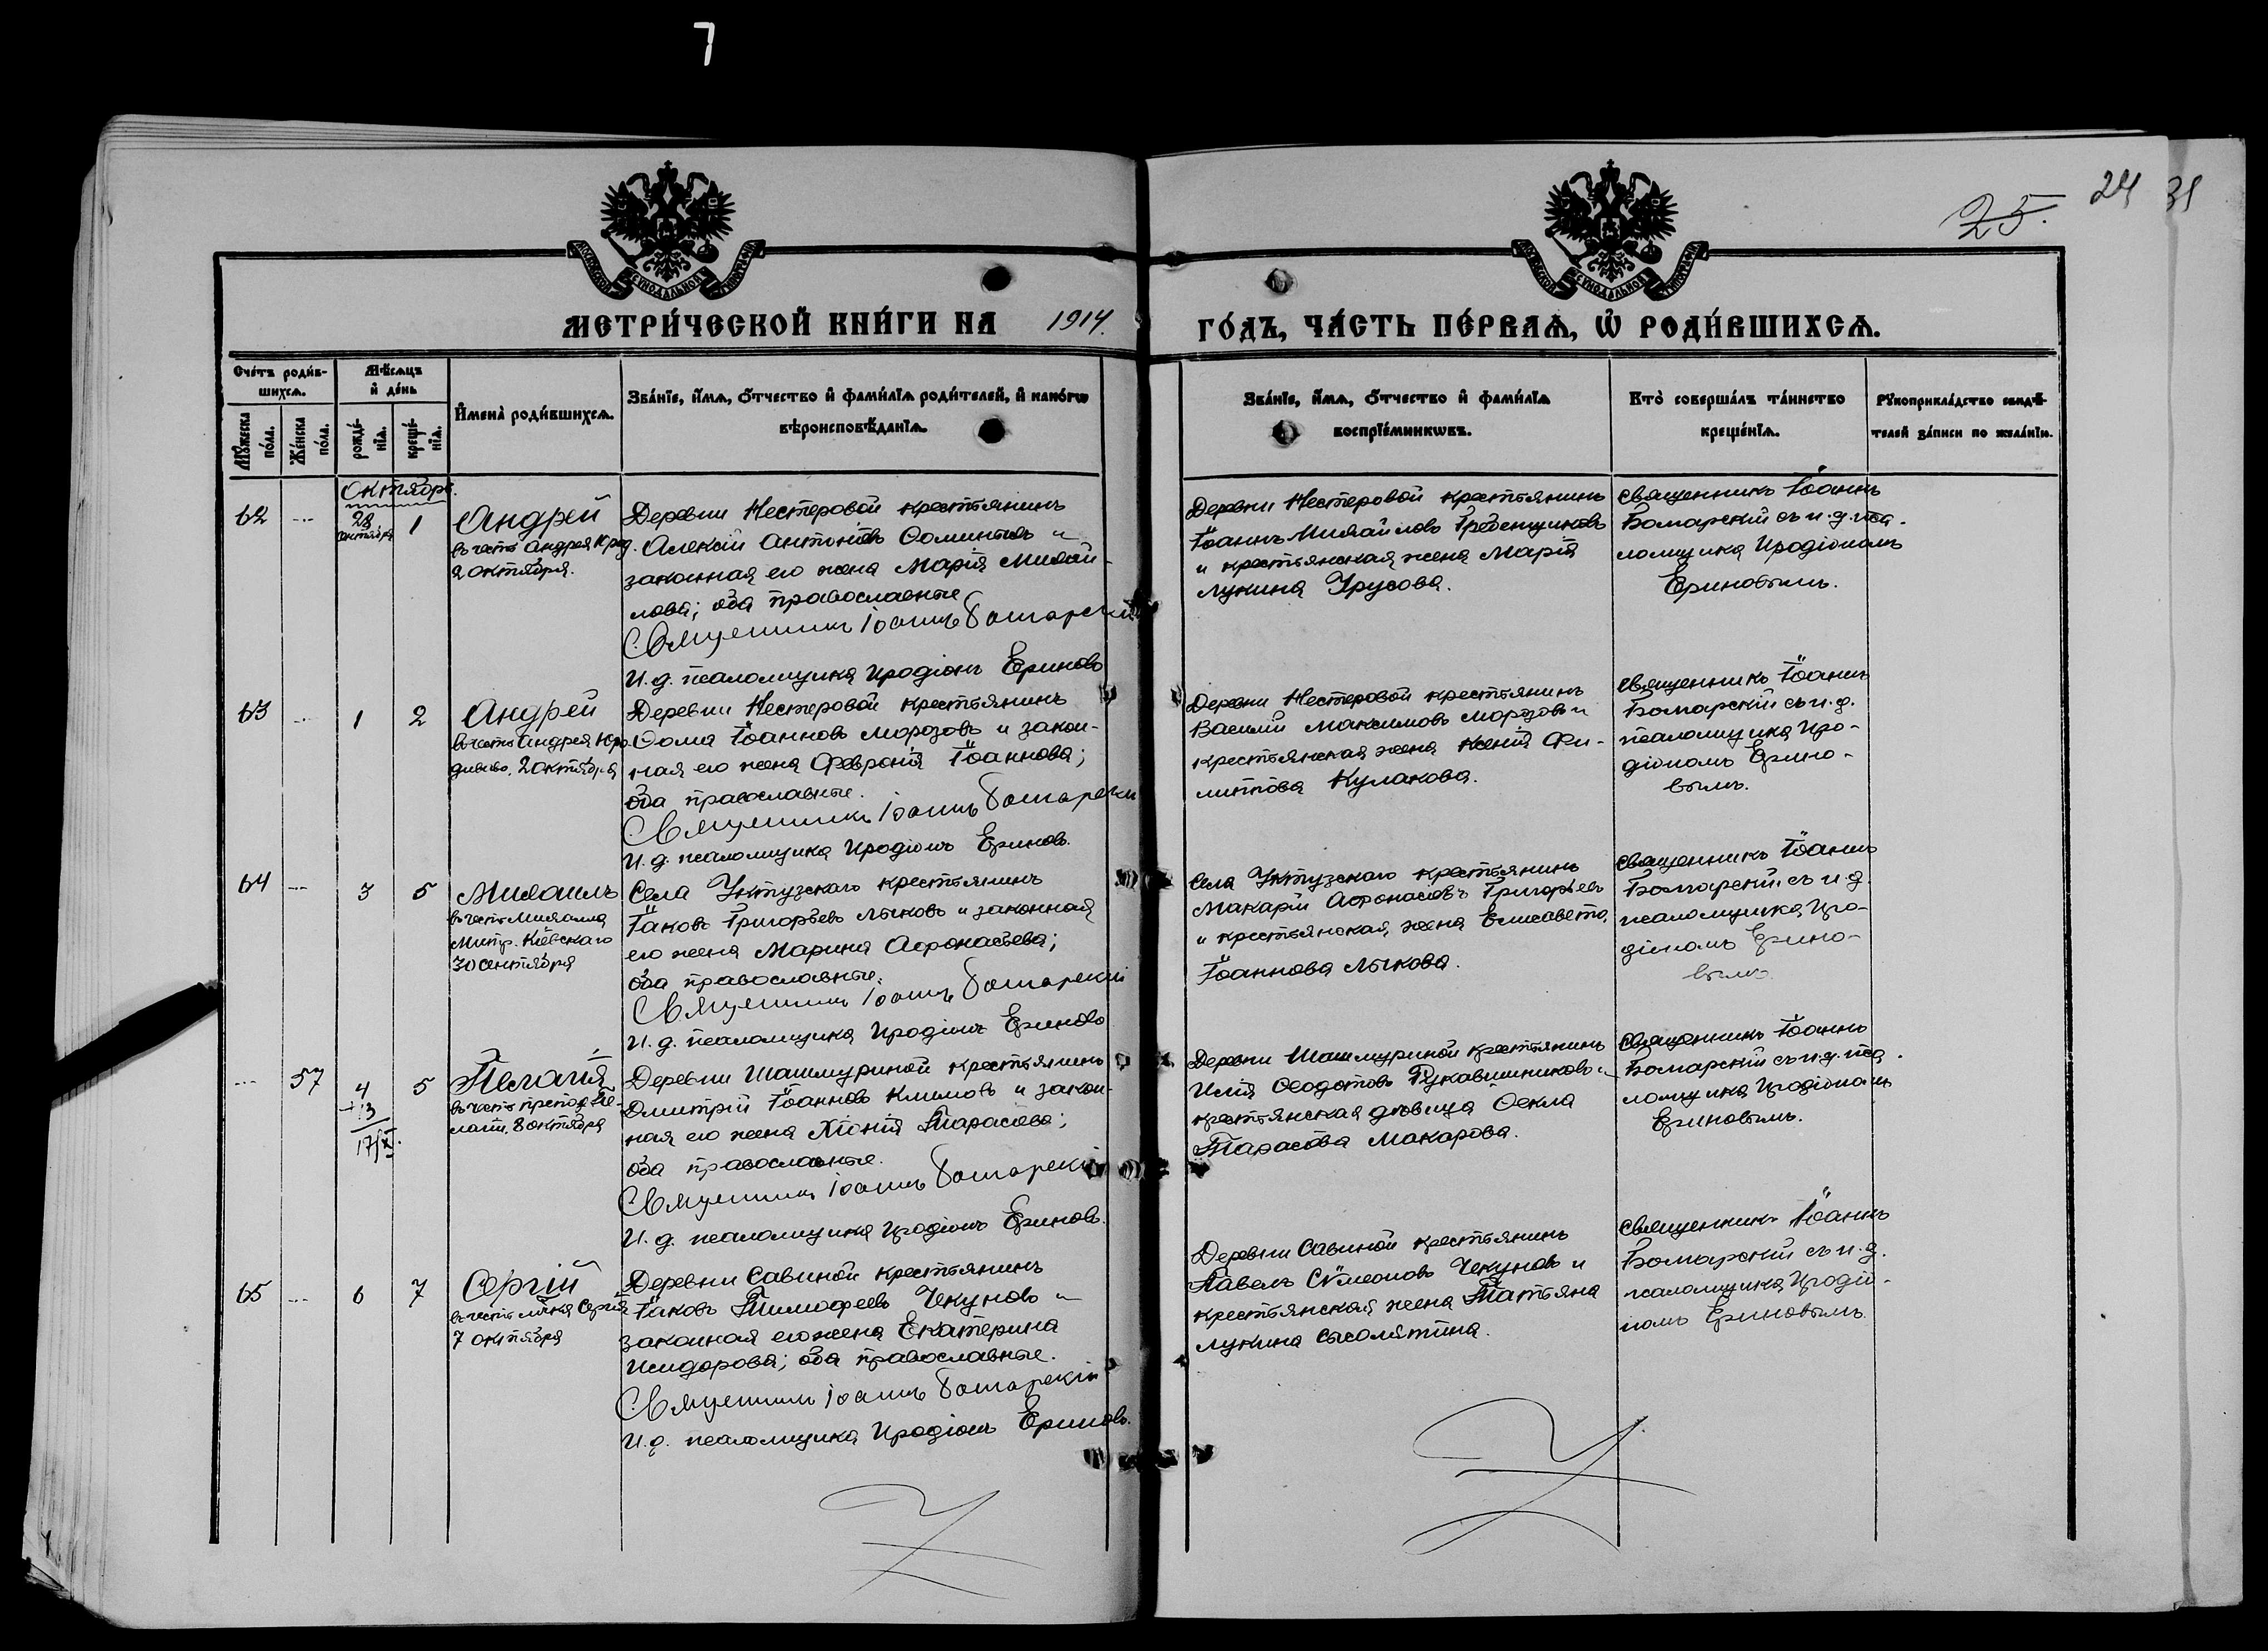 7
25.
24
31
МЕТРИ́ЧЕСКОЙ КНИ́ГИ НА 1914.
ГО́ДЪ, ЧА́СТЬ ПЕ́РВАѦ, Ѡ҆ РОДИ́ВШИХСѦ.
Сче́тъ роди́в-
шихсѧ.
Мꙋ́жеска
по́ла.
Же́нска
по́ла.
Мѣ́сѧцъ
и҆ де́нь
рожде́-
нїѧ.
креще́-
нїѧ.
И҆мена̀ роди́вшихсѧ.
Зва́нїе, и҆́мѧ, ѻ҆́тчество и҆ фами́лїѧ роди́телей, и҆ како́гѡ
вѣроисповѣ́данїѧ.
Зва́нїе, и҆́мѧ, ѻ҆́тчество и҆ фами́лїѧ
воспрїе́мникѡвъ.
Кто̀ соверша́лъ та́инство
креще́нїѧ.
Рꙋкоприкла́дство свидѣ́-
телей за́писи по жела́нїю.
Октябрь.
62
28
сентября
1
Андрей
въ честь Андрея Юрод.
2 октября.
Деревни Нестеровой крестьянинъ
Алексій Антоновъ Ѳоминыхъ и
законная его жена Марія Михай-
лова; оба православные
Священникъ Іоаннъ Бомарскій
И. д. псаломщика Иродіонъ Ериновъ
Деревни Нестеровой крестьянинъ
Іоаннъ Михайловъ Гребенщиковъ
и крестьянская жена Марія
Лукина Урусова.
Священникъ Іоаннъ
Бомарскій съ и. д. пса-
ломщика Иродіономъ
Ериновымъ.
63
1
2
Андрей
въ честь Андрея Юро-
дивого, 2 октября
Деревни Нестеровой крестьянинъ
Ѳома Іоанновъ Морозовъ и закон-
ная его жена Февронія Іоаннова;
оба православные.
Священникъ Іоаннъ Бомарскій
И. д. псаломщика Иродіонъ Ериновъ.
Деревни Нестеровой крестьянинъ
Василій Максимовъ Морозовъ и
крестьянская жена Ксенія Фи-
липпова Кулакова.
Священникъ Іоаннъ
Бомарскій съ и. д.
псаломщика Иро-
діономъ Ерино-
вымъ.
64
3
5
Михаилъ
въ честь Михаила
Митр. Кіевскаго
30 сентября
Села Уктузскаго крестьянинъ
Іаковъ Григорьевъ Лыковъ и законная
его жена Марина Аѳонасьева;
оба православные.
Священникъ Іоаннъ Бомарскій
И. д. псаломщика Иродіонъ Ериновъ
Села Уктузскаго крестьянинъ
Макарій Аѳонасьевъ Григорьевъ
и крестьянская жена Елисавета
Іоаннова Лыкова.
Священникъ Іоаннъ
Бомарскій съ и. д.
псаломщика Иро-
діономъ Ерино-
вымъ
57
4
+13
17/X.
5
Пелагія
въ честь препод. Пе-
лагіи, 8 октября
Деревни Шашмуриной крестьянинъ
Димитрій Іоанновъ Климовъ и закон-
ная его жена Хіонія Тарасова;
оба православные.
Священникъ Іоаннъ Бомарскій
И. д. псаломщика Иродіонъ Ериновъ.
Деревни Шашмуриной крестьянинъ
Илія Ѳеодотовъ Рукавишниковъ и
крестьянская дѣвица Ѳекла
Тарасова Макарова.
Священникъ Іоаннъ
Бомарскій съ и. д. пса-
ломщика Иродіономъ
Ериновымъ.
65
6
7
Сергій
въ честь мчка Сергія
7 октября
Деревни Савиной крестьянинъ
Іаковъ Тимофеевъ Чекуновъ и
законная его жена Екатерина
Исидорова; оба православные.
Священникъ Іоаннъ Бомарскій
И. д. псаломщика Иродіонъ Ериновъ.
Деревни Савиной крестьянинъ
Павелъ Сѵмеоновъ Чекуновъ и
крестьянская жена Татьяна
Лукина Сысолятина.
Священникъ Іоаннъ
Бомарскій съ и. д.
псаломщика Иродіо-
номъ Ериновымъ.